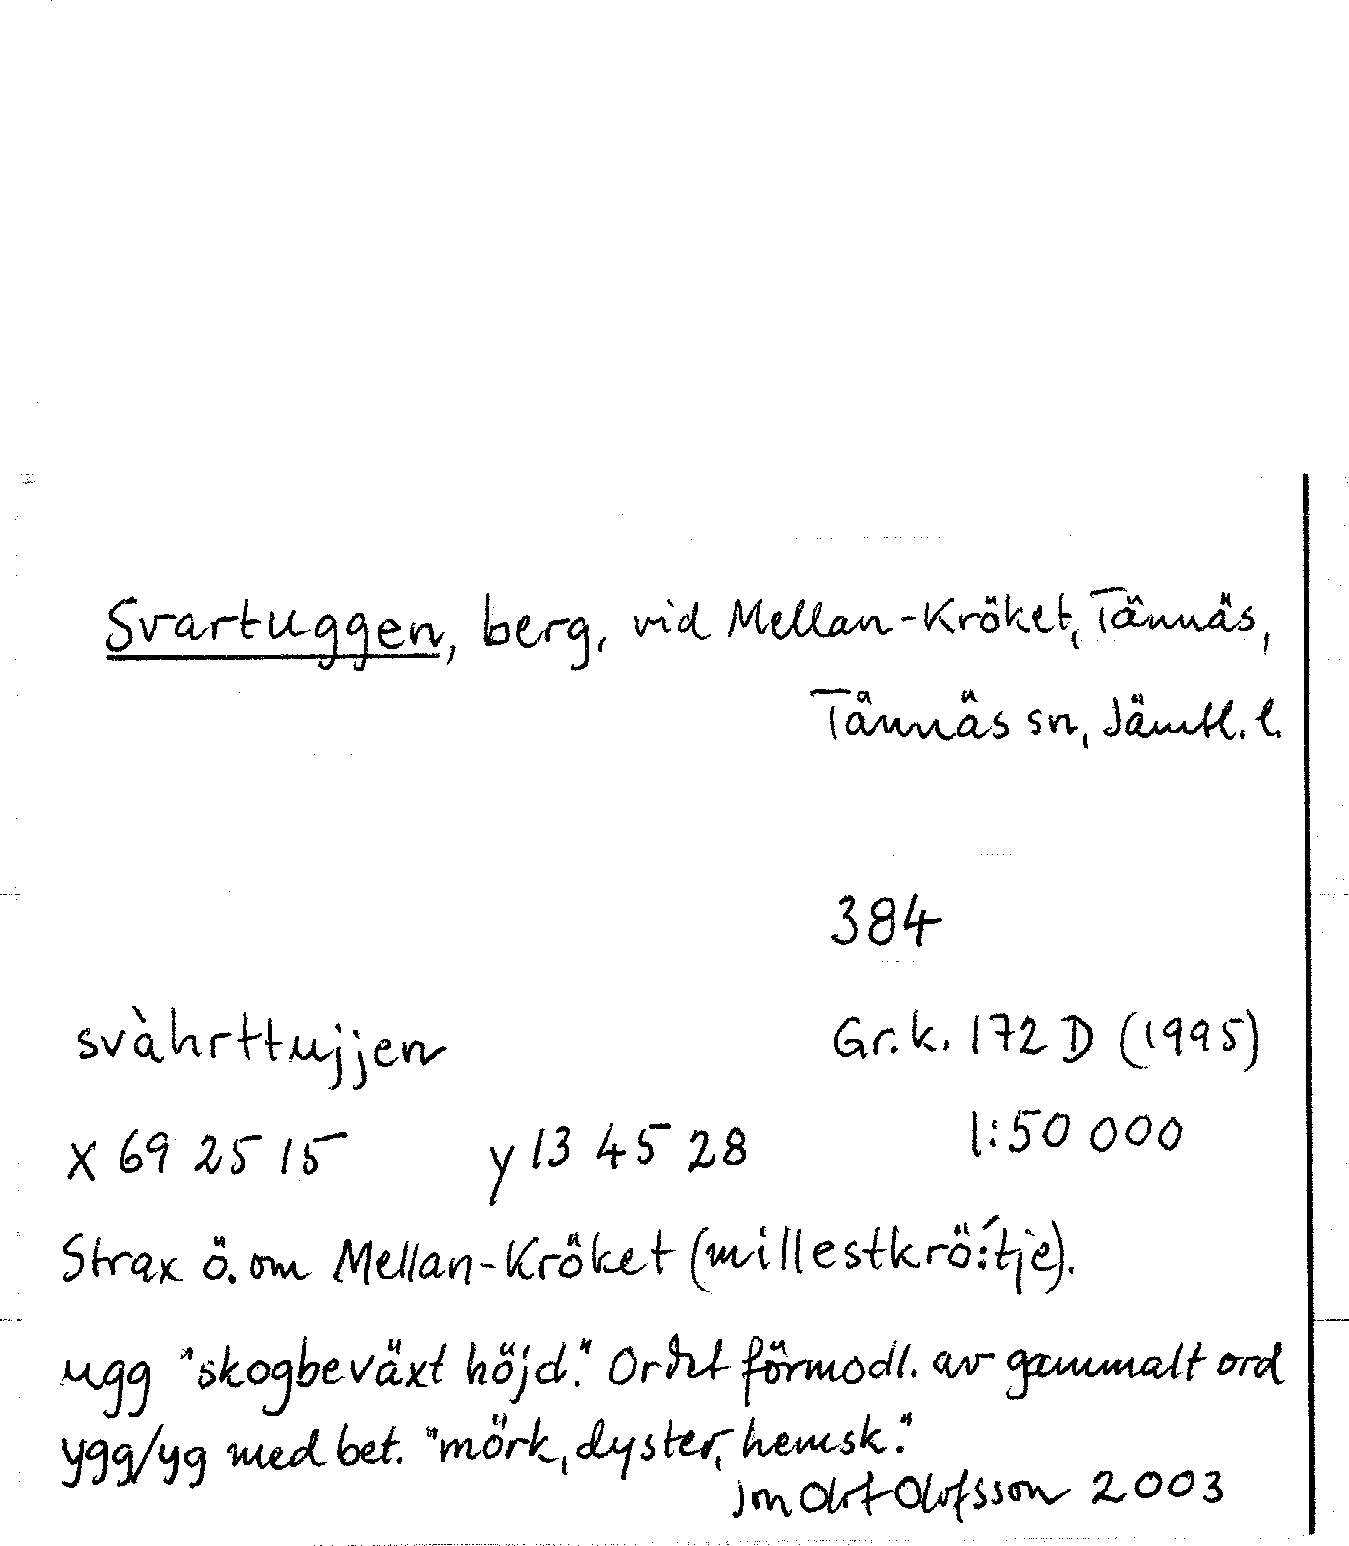 Svartuggen, berg, vid Mellan-Kröket, Tännäs,
Tännäs sn, Jämtl. l.
384
svàhrttujjen
Gr.k. 172 D (1995)
x 69 25 15 y 13 45 28
1:50 000
Strax ö. om Mellan-Kröket (millestkrö:́tje).
ugg "skogbeväxt höjd". Ordet förmodl. av gammalt ord
ygg/yg med bet. "mörk, dyster, hemsk."
Jon Olof Olofsson 2003